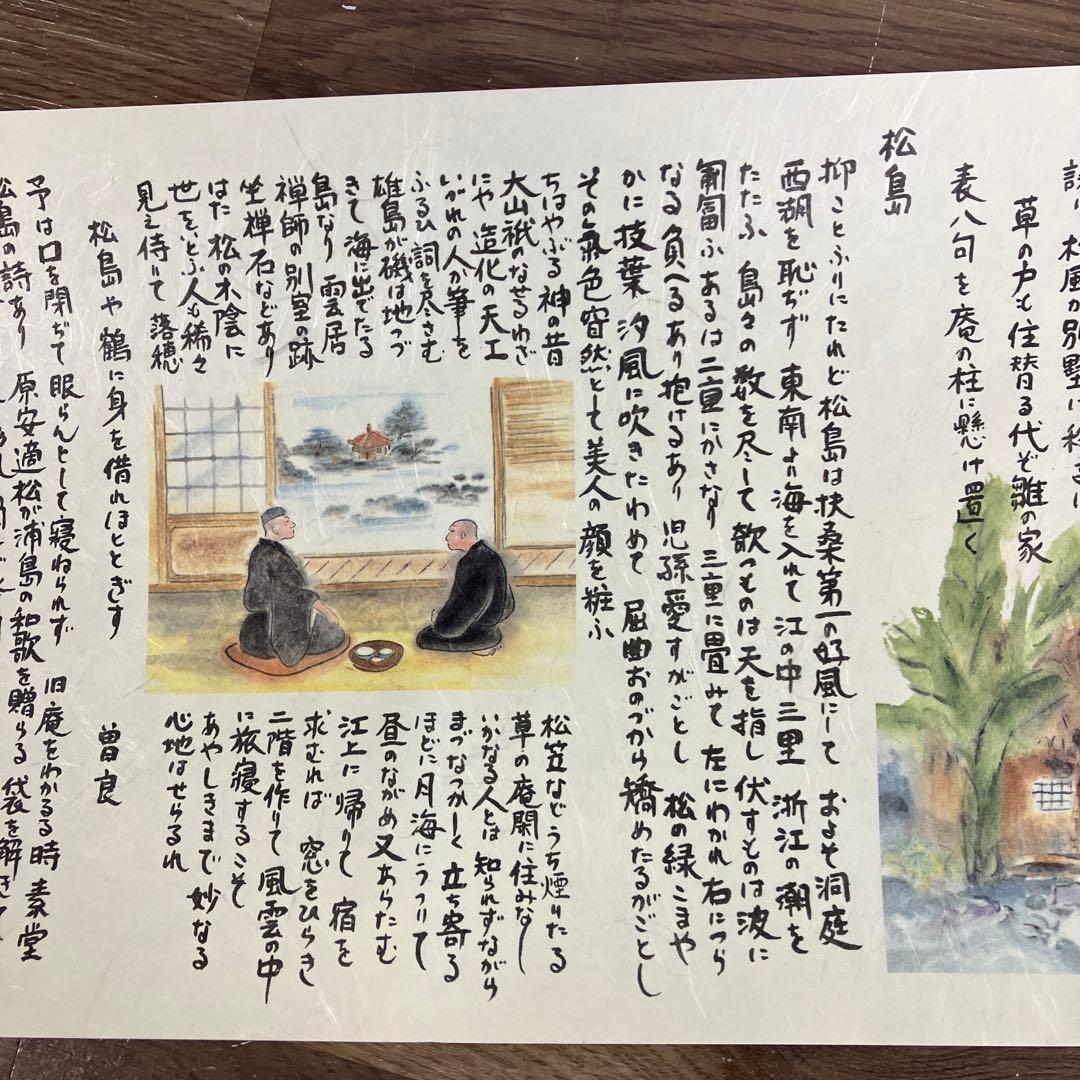 杉風が別墅に移るに
草の戸も住替る代ぞ雛の家
表八句を庵の柱に懸け置く
松島
抑ことふりにたれど松島は扶桑第一の好風にして およそ洞庭
西湖を恥ぢず 東南より海を入れて 江の中三里 浙江の潮を
たたふ 島々の数を尽して 欹つものは天を指し 伏すものは波に
匍匐ふ あるは二重にかさなり 三重に畳みて 左にわかれ右につら
なる 負へるあり抱けるあり 児孫愛すがごとし 松の緑こまや
かに 枝葉汐風に吹きたわめて 屈曲おのづから矯めたるがごとし
その氣色窅然として美人の顔を粧ふ
ちはやぶる神の昔
大山祇のなせるわざ
にや 造化の天工
いづれの人か筆を
ふるひ詞を尽さむ
雄島が磯は地つづ
きて 海に出でたる
島なり 雲居
禅師の別室の跡
坐禅石などあり
はた 松の木陰に
世をいとふ人も稀々
見え侍りて 落穂
松笠などうち煙りたる
草の庵閑に住みなし
いかなる人とは知られずながら
まづなつかしく立ち寄る
ほどに月海にうつりて
昼のながめ又あらたむ
江上に帰りて 宿を
求むれば 窓をひらき
二階を作りて 風雲の中
に旅寝するこそ
あやしきまで妙なる
心地はせらるれ
松島や鶴に身を借れほととぎす 曽良
予は口を閉ぢて眠らんとして寝ねられず 旧庵をわかるる時 素堂
松島の詩あり 原安適松が浦島の和歌を贈らる 袋を解きて